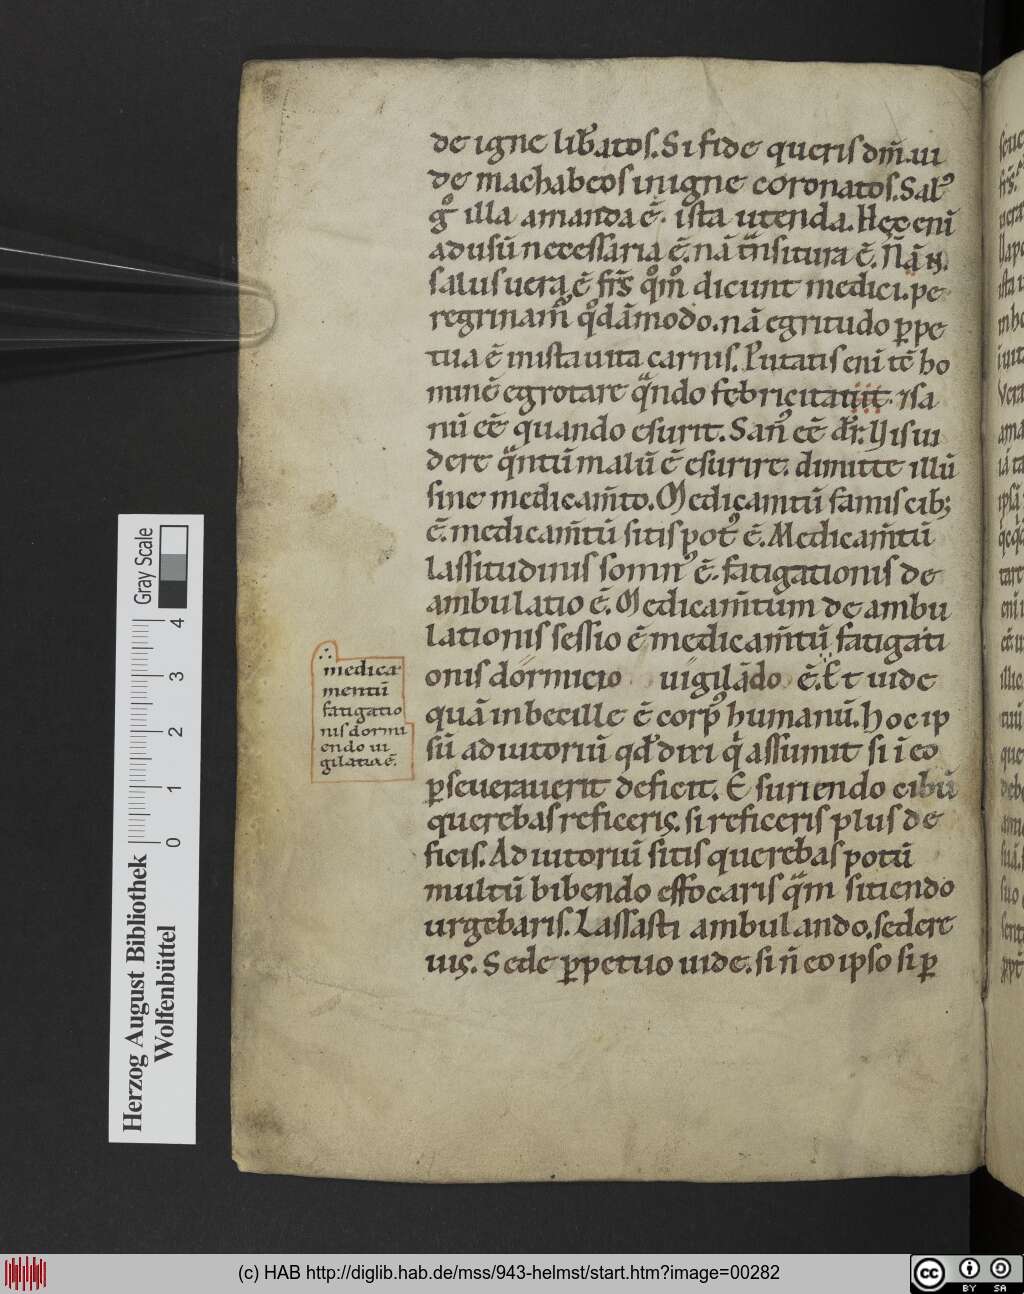 de igne lib̄atos. Si fide queris dm̄. ui
de machabeos in igne coronatos. Salꝰ
gͦ illa amanda ē. ista utenda. Hec enī
ad usū necessaria ē. nā tn̄situra ē. Nā
salus uera ē fr̄s qͦm dicunt medici. pe
regrinam̄ qͦdāmodo. nā egritudo ꝑpe
tua ē in ista uita carnis. Putatis enī tē ho
minē egrotare qᷓndo febricitauit. sa
nū eē quando esurit. Sanꝰ eē dr̄. Uis ui
dere qᷓntū malū ē esurire. dimitte illū
sine medicam̄to. Medicamtū famis cibꝰ
ē. medicam̄tū sitis potꝰ ē. Medicam̄tū
lassitudinis somnꝰ ē. fatigationis de
ambulatio ē. Medicam̄tum de ambu
lationis sessio ē medicam̄tū fatigati
onis dormicio uigilādo ē. Et uide
quā inbecille ē corpꝰ humanū. hoc ip
sū adiutoriū qd̄ dixi qͥ assumit si ī eo
ꝑseuerauerit deficit. Esuriendo cibū
querebas reficeris. si reficeris plus de
ficis. Adiutoriū sitis querebas potū
multū bibendo effocaris qᷓm sitiendo
urgebaris. Lassasti ambulando. sedere
uis. Sede ꝑpetuo uide. si n̄ eo ipso si ꝑ
medica
mentū
fatigatio
nis dormi
endo ui
gilatura ē.
Gray Scale
0 1 2 3 4
Herzog August Bibliothek
Wolfenbüttel
(c) HAB http://diglib.hab.de/mss/943-helmst/start.htm?image=00282
cc BY SA